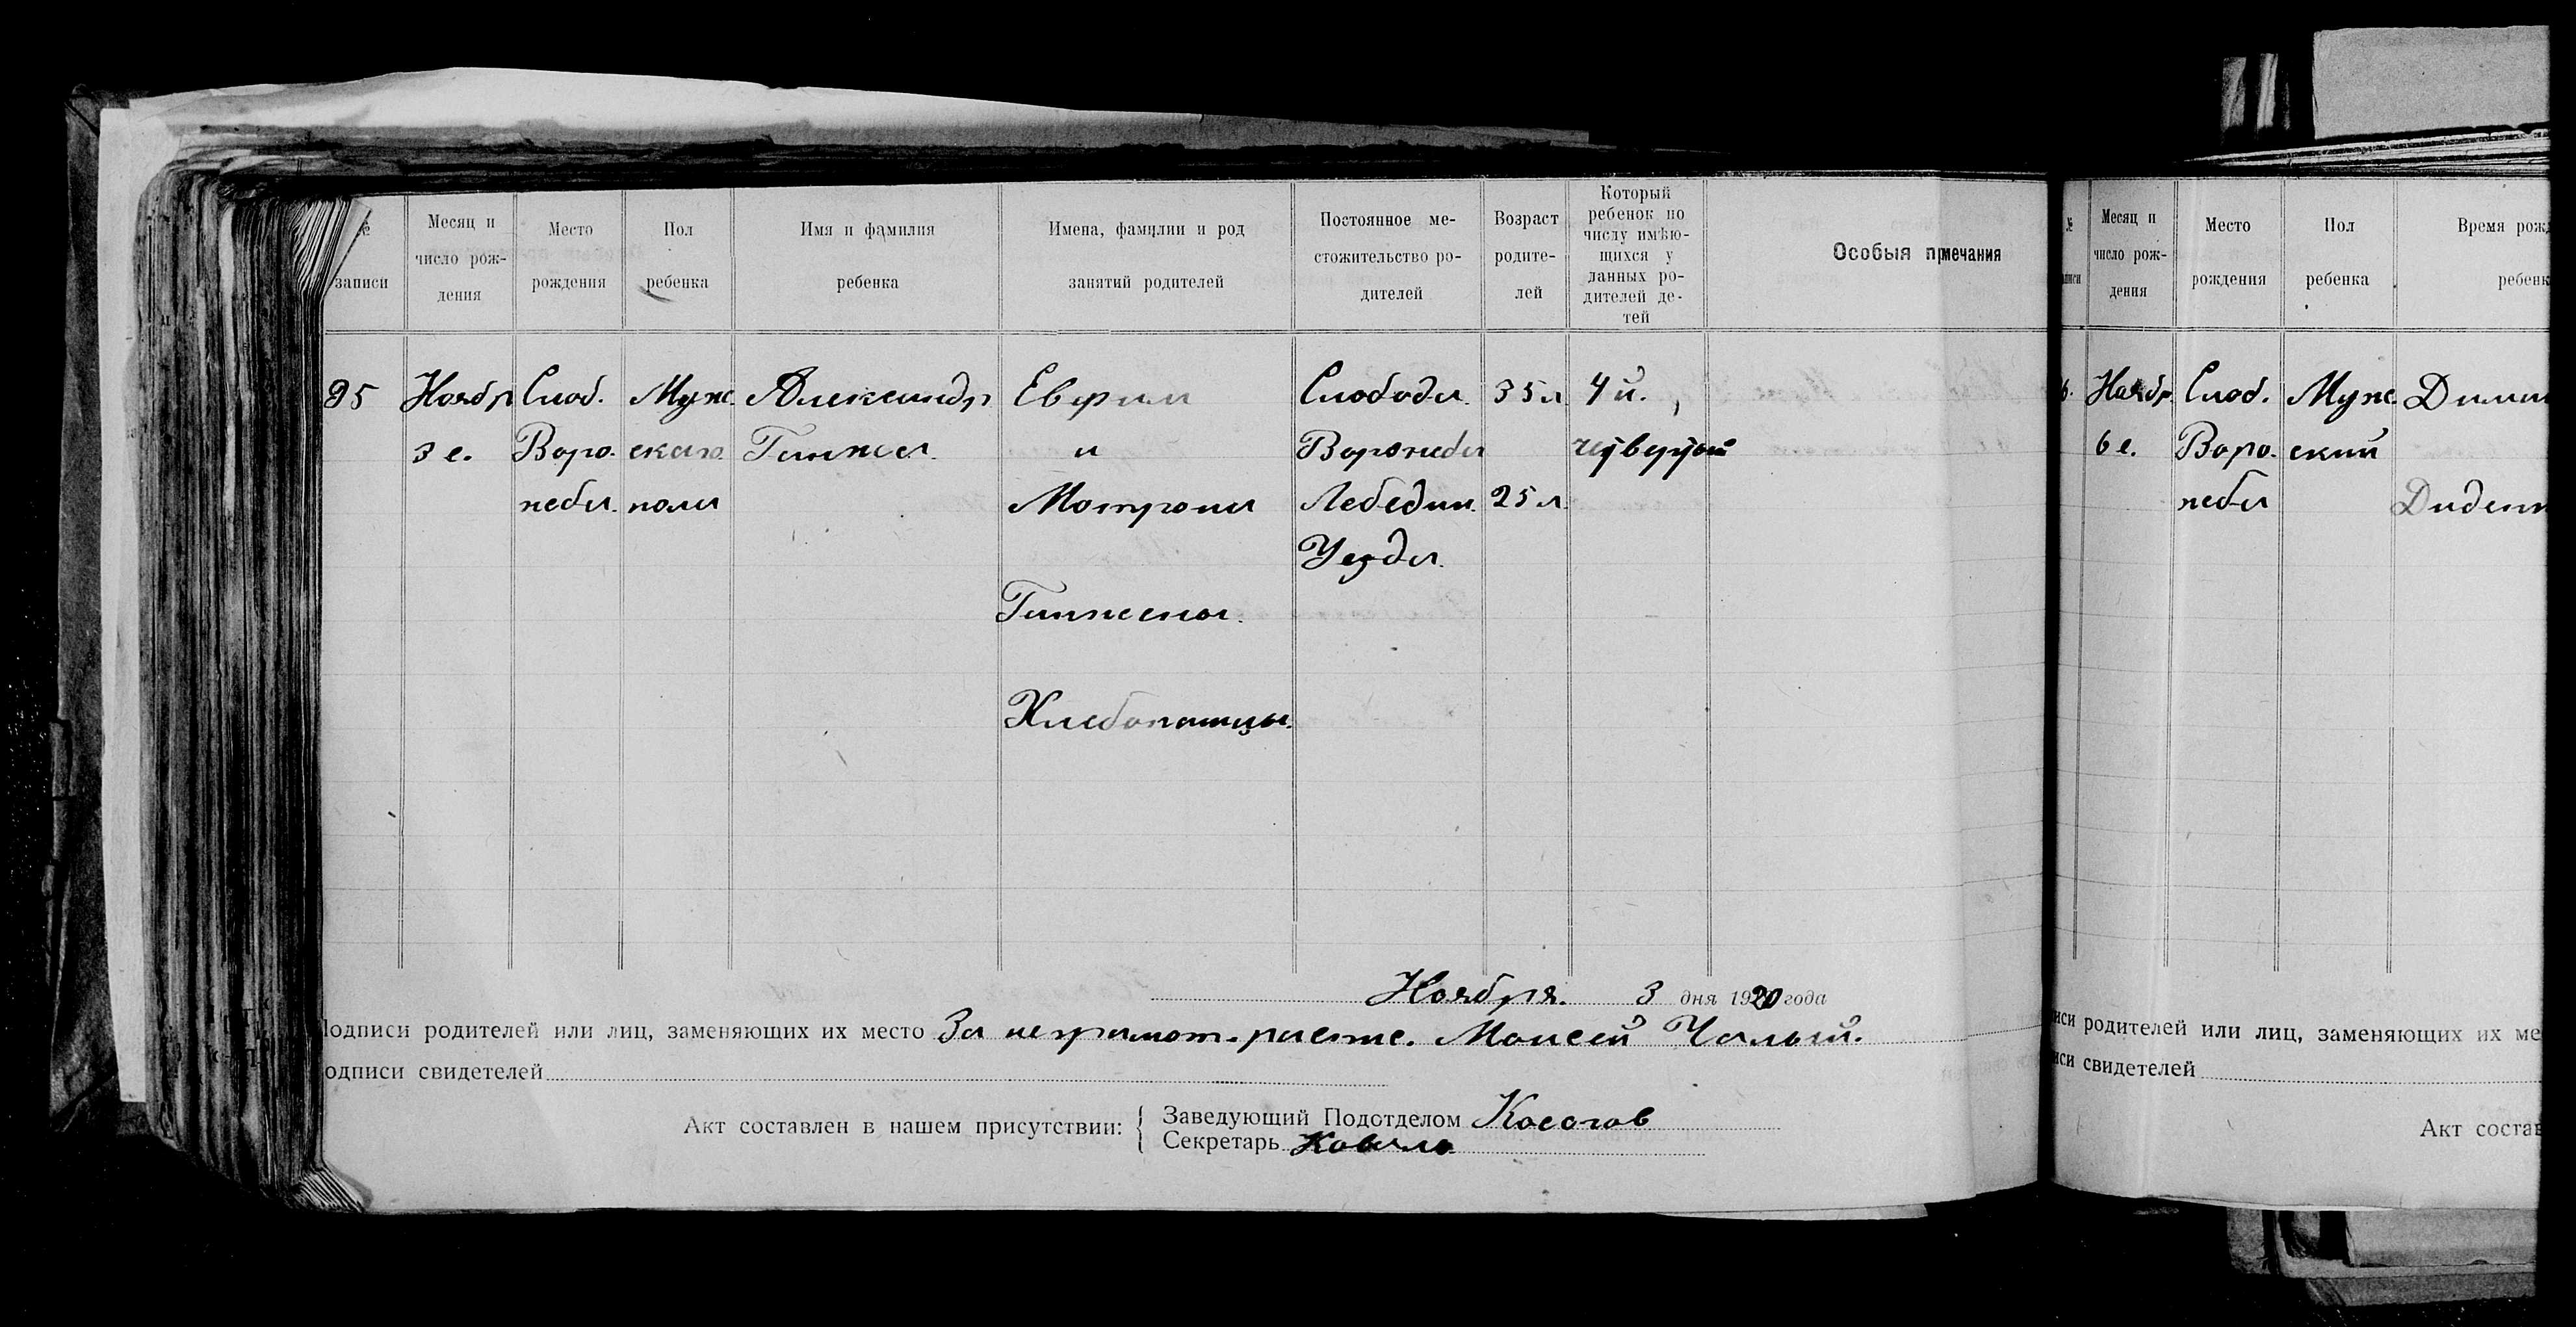 № записи
Месяц и число рождения
Место рождения
Пол ребенка
Имя и фамилия ребенка
Имена, фамилии и род занятий родителей
Постоянное местожительство родителей
Возраст родителей
Который ребенок по числу имѣющихся у данных родителей детей
Особыя примечания
95
Ноябр
3 е.
Слоб.
Воро-
неба.
Муж.
скаго
пола
Александр
Ганжа
Евфим
и
Матрона
Ганжены.
Хлебопашцы.
Слобода.
Воронеба
Лебедин.
Уезда.
35 л
25 л
4 й.
четвертый
Ноября. 3 дня 1920 года
Подписи родителей или лиц, заменяющих их место За неграмот. Моисей Чалый.
одписи свидетелей
Акт составлен в нашем присутствии: Заведующий Подотделом Косогов
Секретарь Коваль
№
Месяц и число рождения
Место рождения
Пол ребенка
Время рожд
ребенк
6.
Ноябр.
6 е.
Слоб.
Воро-
неба
Муж.
ский
Дими
Диден
иси родителей или лиц, заменяющих их ме
иси свидетелей
Акт состав